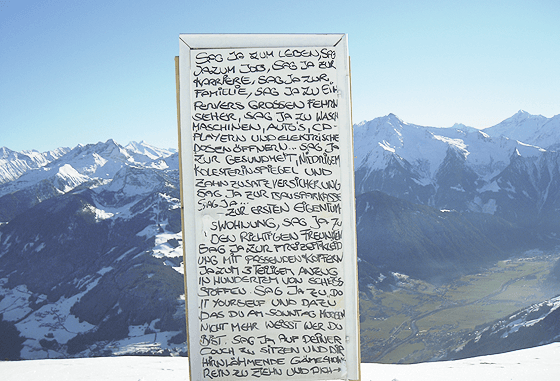 SAG JA ZUM LEBEN, SAG
JA ZUM JOB, SAG JA ZUR
KARRIERE, SAG JA ZUR
FAMILIE, SAG JA ZU EIM
PERVERS GROSSEN FERN
SEHER, SAG JA ZU WASCH
MASCHINEN, AUTO'S, CD-
PLAYERN UND ELEKTRISCHE
DOSENÖFFNERN... SAG JA
ZUR GESUNDHEIT, NIDRIGEM
KOLESTERINSPIEGEL UND
ZAHNZUSATZVERSICHERUNG
SAG JA ZUR BAUSPARKASSE
SAG JA
ZUR ERSTEN EIGENTUM
SWOHNUNG, SAG JA ZU
DEN RICHTIGEN FREUNDEN
SAG JA ZUR FREIZEITKLEID
UNG MIT PASSENDEN KOFFERN
JA ZUM 3 TEILIGEN ANZUG
IN HUNDERTEM VON SCHEISS
STOFFEN. SAG JA ZU, DO
IT YOURSELF UND DAZU
DAS DU AM SONNTAG MORGEN
NICHT MEHR WEISST WER DU
BIST. SAG JA AUF DEINER
COUCH ZU SITZEN UND DIR
HIRNLÄHMENDE GAMESHOW-
REIN ZU ZIEHN UND DICH